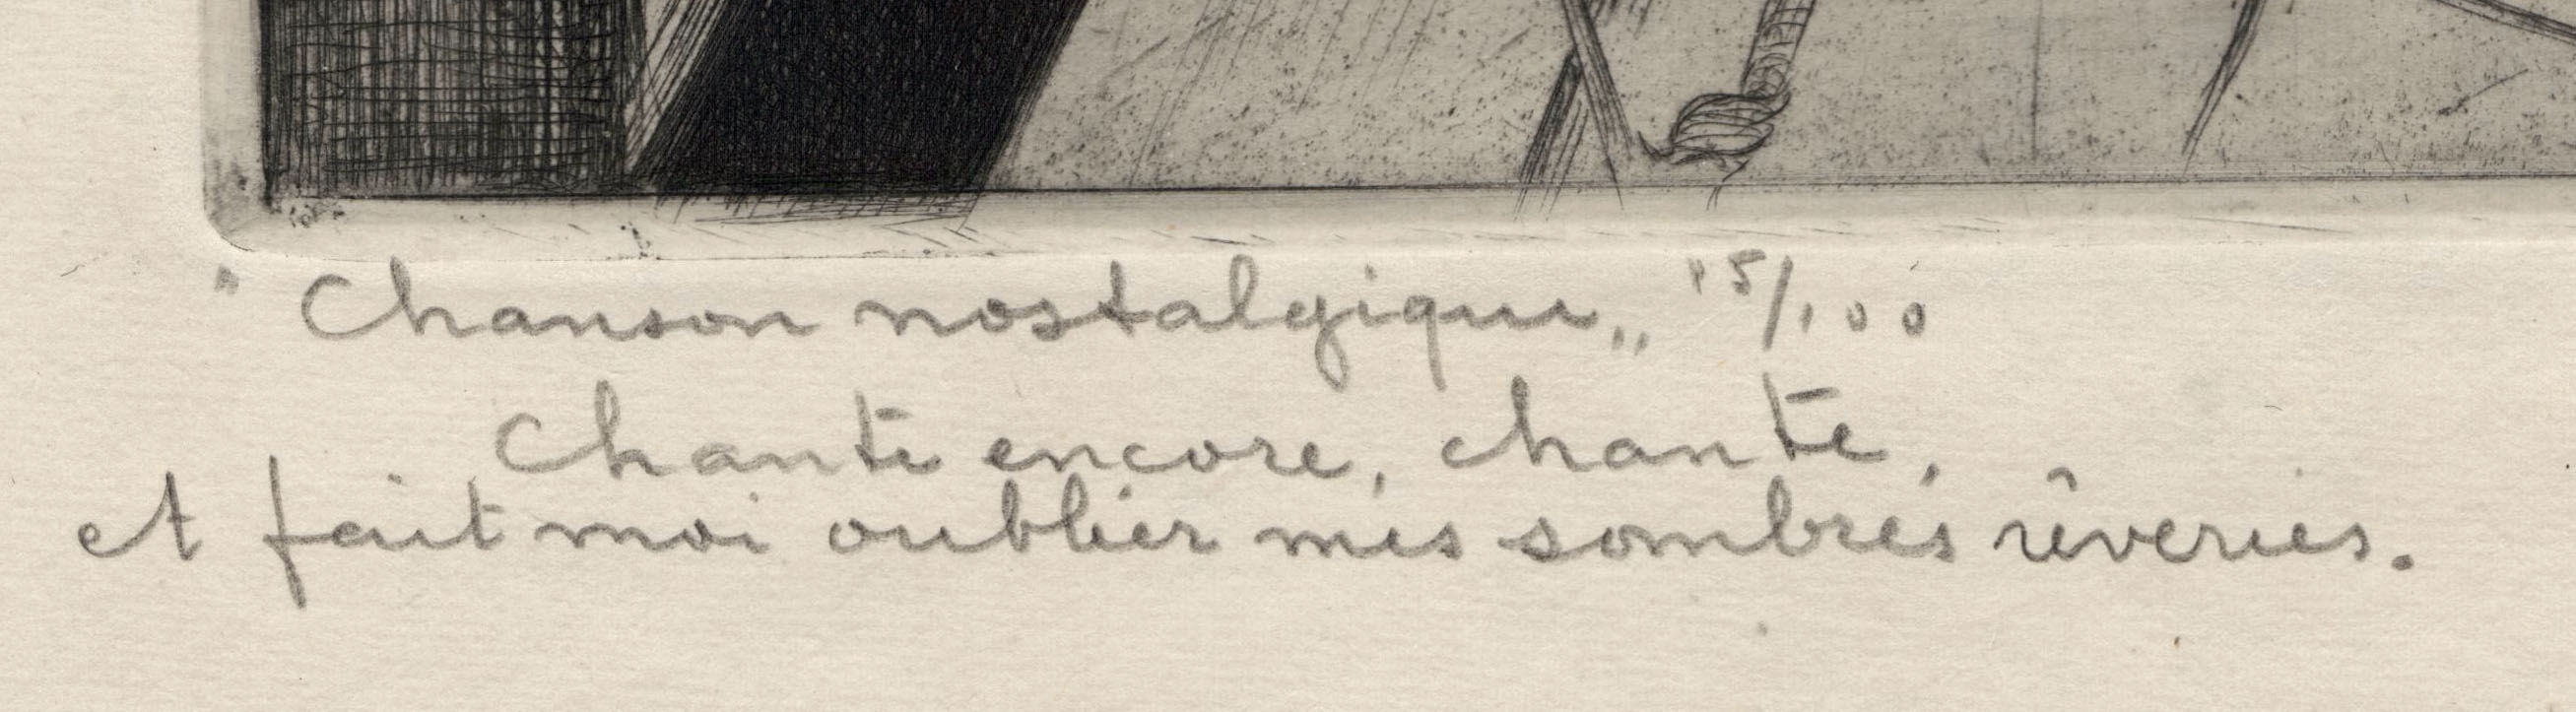 "Chanson nostalgique„ 15/100
Chante encore, chante,
et fait moi oublier mes sombres rêveries.